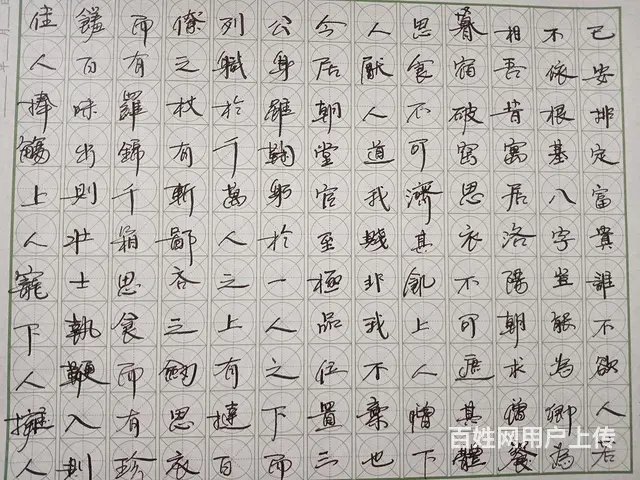 已安排定富貴誰不欲人若
不依根基八字豈能為卿為
相吾昔寓居洛陽朝求僧餐
暮宿破窑思衣不可遮其體
思食不可濟其飢上人憎下
人厭人道我賤非我不棄也
今居朝堂官至極品位置三
公身雖鞠躬於一人之下而
列職於千萬人之上有撻百
僚之杖有斬鄙吝之劍思衣
而有羅錦千箱思食而有珍
饈百味出則壯士執鞭入則
佳人捧觴上人寵下人擁人
百姓网用户上传